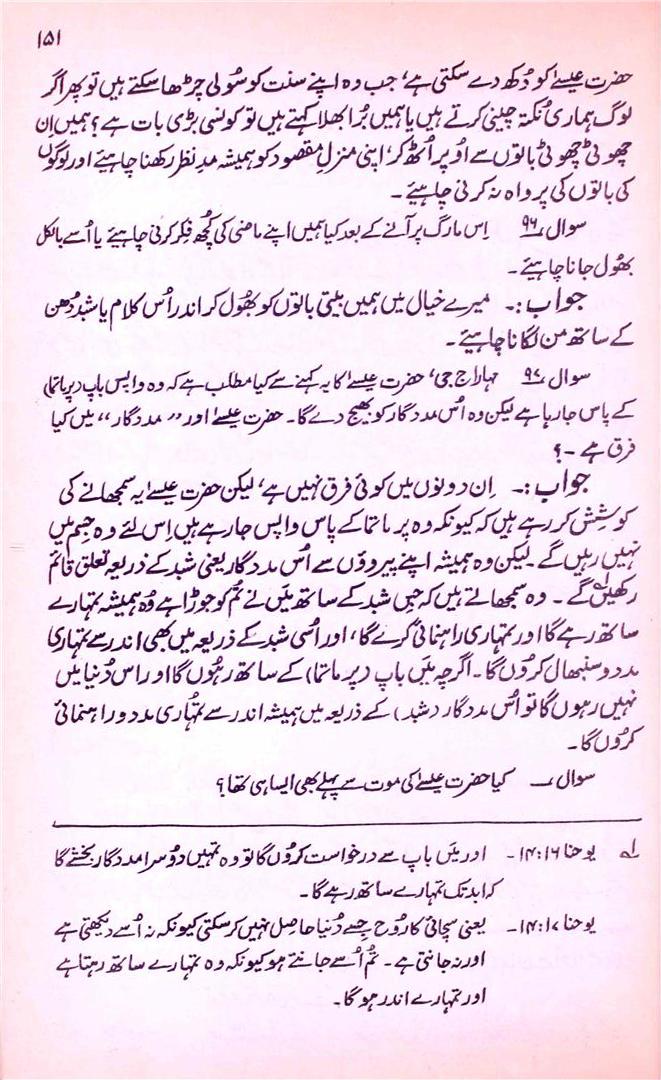 ۱۵۱
حضرت عیسےٰ کو دُکھ دے سکتی ہے، جب وہ اپنے سنت کو سُولی چڑھا سکتے ہیں تو پھر اگر
لوگ ہماری نُکتہ چینی کرتے ہیں یا ہمیں بُرا بھلا کہتے ہیں تو کونسی بڑی بات ہے؟ ہمیں اِن
چھوٹی چھوٹی باتوں سے اُوپر اُٹھ کر، اپنی منزلِ مقصود کو ہمیشہ مدِ نظر رکھنا چاہیئے اور لوگوں
کی باتوں کی پرواہ نہ کرنی چاہیئے۔
سوال ۹۶ اِس مارگ پر آنے کے بعد کیا ہمیں اپنے ماضی کی کُچھ فِکر کرنی چاہیئے یا اُسے بالکل
بھُول جانا چاہیئے۔
جواب :۔ میرے خیال میں ہمیں بیتی باتوں کو بھُول کر اندر اُس کلام یا شبد دُھن
کے ساتھ من لگانا چاہیئے۔
سوال ۹۷ مہاراج جی، حضرت عیسےٰ کا یہ کہنے سے کیا مطلب ہے کہ وہ واپس باپ (پرماتما)
کے پاس جا رہا ہے لیکن وہ اُس مددگار کو بھیج دے گا۔ حضرت عیسےٰ اور ”مددگار“ میں کیا
فرق ہے۔؟
جواب :۔ اِن دونوں میں کوئی فرق نہیں ہے، لیکن حضرت عیسےٰ یہ سمجھانے کی
کوشش کر رہے ہیں کہ کیونکہ وہ پرماتما کے پاس واپس جا رہے ہیں اِس لئے وہ جسم میں
نہیں رہیں گے۔ لیکن وہ ہمیشہ اپنے پیروؤں سے اُس مددگار یعنی شبد کے ذریعہ تعلق قائم
رکھیں گے۔ وہ سمجھاتے ہیں کہ جس شبد کے ساتھ مَیں نے تُم کو جوڑا ہے وُہ ہمیشہ تمہارے
ساتھ رہے گا اور تمہاری راہنمائی کرے گا، اور اُسی شبد کے ذریعہ میں بھی اندر سے تمہاری
مدد و سنبھال کروں گا۔ اگرچہ مَیں باپ (پرماتما) کے ساتھ رہُوں گا اور اس دُنیا میں
نہیں رہوں گا تو اُس مددگار (شبد) کے ذریعہ میں ہمیشہ اندر سے تمہُاری مدد و راہنمائی
کروُں گا۔
سوال ـ کیا حضرت عیسےٰ کی موت سے پہلے بھی ایسا ہی تھا؟
لہ یوحنا ۱۴:۱۶۔ اور مَیں باپ سے درخواست کروُں گا تو وہ تمہیں دُوسرا مددگار بخشے گا
کہ ابد تک تمہارے ساتھ رہے گا۔
یوحنا ۱۴:۱۷۔ یعنی سچائی کا رُوح جِسے دُنیا حاصل نہیں کر سکتی کیونکہ نہ اُسے دیکھتی ہے
اور نہ جانتی ہے۔ تُم اُسے جانتے ہو کیونکہ وہ تمہارے ساتھ رہتا ہے
اور تمہارے اندر ہو گا۔